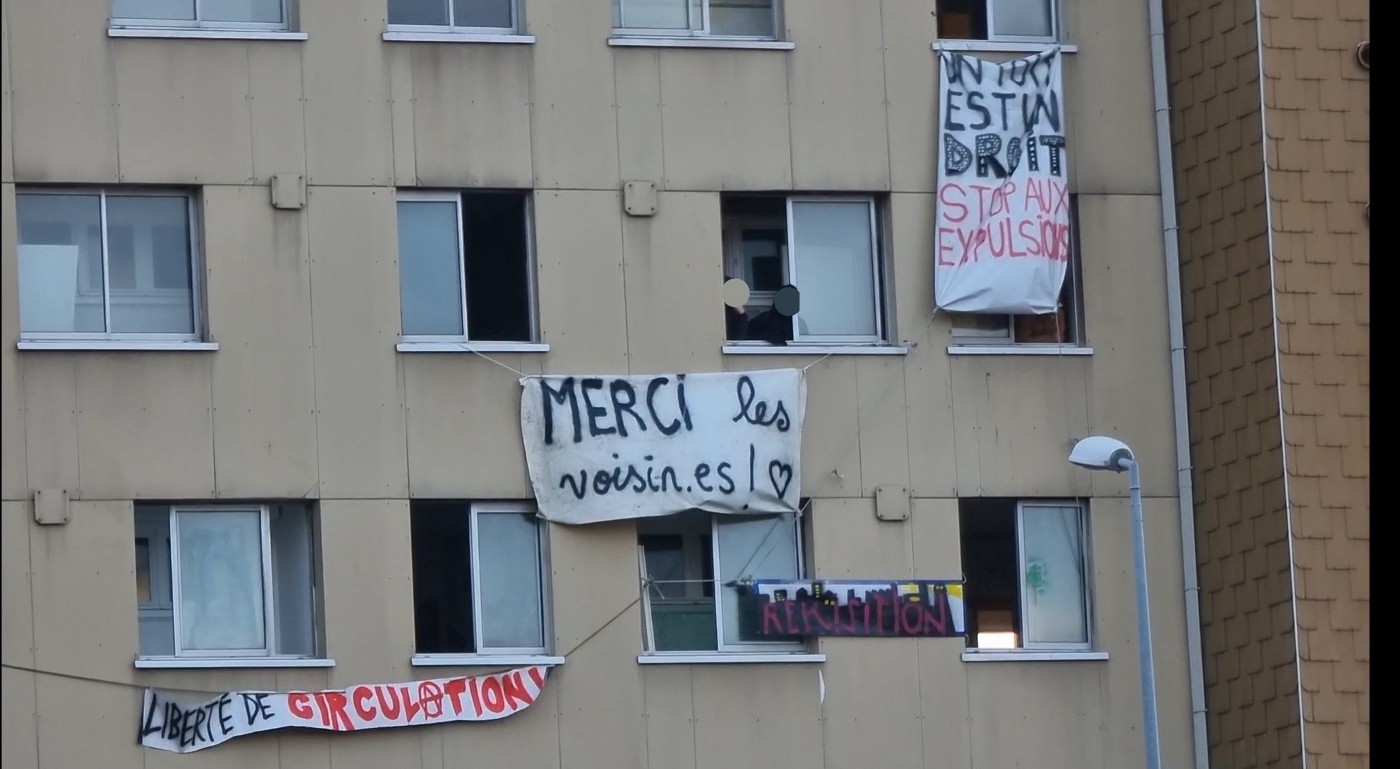 UN TOIT
EST UN
DROIT
STOP AUX
EXPULSIONS
MERCI les
voisin.es !
REKISITION
LIBERTÉ DE CIRCULATION!